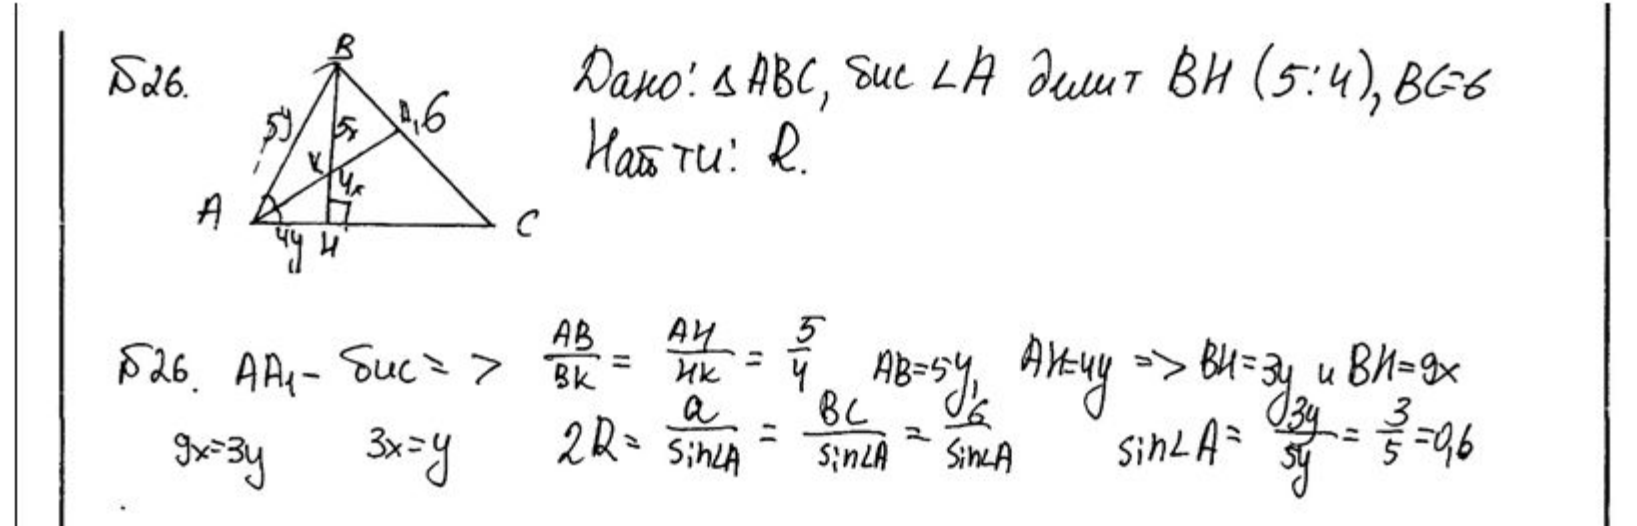 Б26.
B
5y
5x
A₁
6
K
4x
A
4y
H
C
Дано: ΔABC, бис ∠A делит BH (5:4), BC=6
Найти: R.
Б26. AA₁ - бис => AB/BK = AH/HK = 5/4 AB=5y, AH=4y => BH=3y и BH=9x
9x=3y 3x=y 2R = a/sin∠A = BC/sin∠A = 6/sin∠A sin∠A = 3y/5y = 3/5 = 0,6